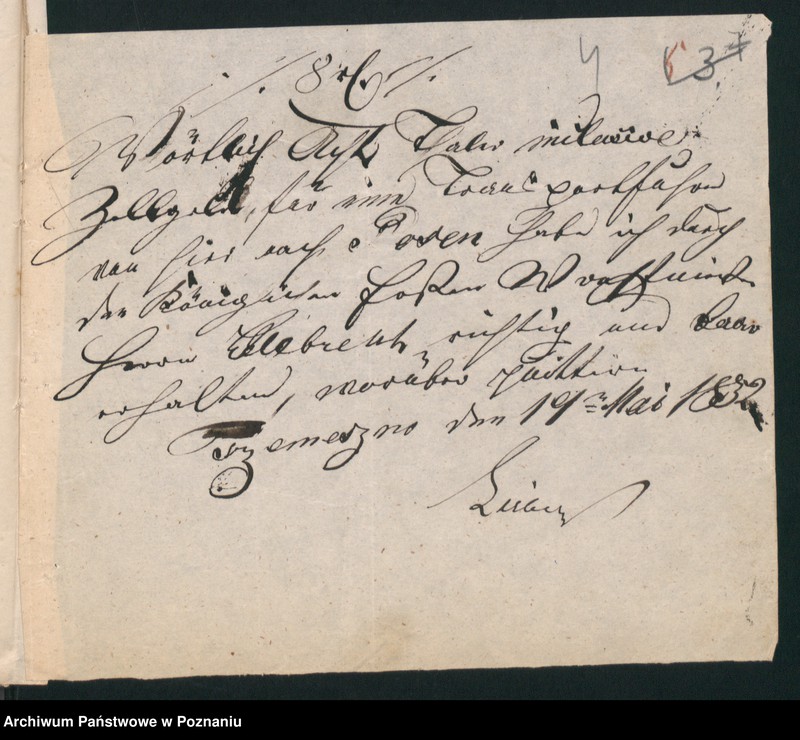 8 rℓ
4 6 37
Wörtlich Acht Thaler inclusive
Zollgeld, für eine Transportfuhre
von hier nach Posen habe ich durch
den Königlichen
Herrn richtig und baar
erhalten, worüber quittire
Trzemeszno den 19ten Mai 1832
Archiwum Państwowe w Poznaniu